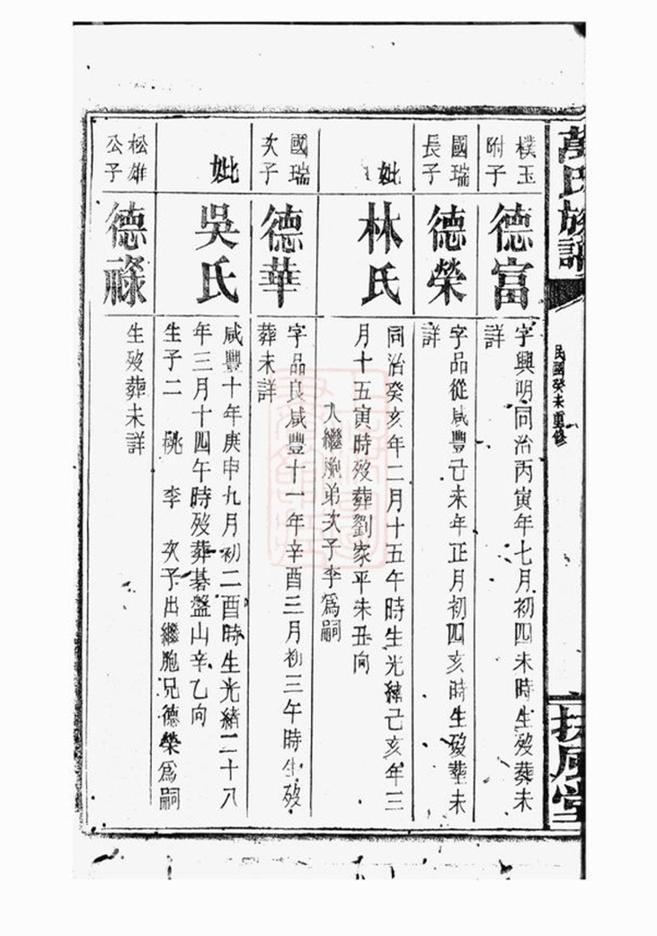 萬氏族譜
民國癸未重修
扶風堂
樸玉
附子
德富
字興明同治丙寅年七月初四未時生歿葬未
詳
國瑞
長子
德榮
字品從咸豐己未年正月初四亥時生歿塟未
詳
妣
林氏
同治癸亥年二月十五午時生光緒己亥年三
月十五寅時歿葬劉家平未丑向
入繼胞弟次子李爲嗣
國瑞
次子
德華
字品良咸豐十一年辛酉三月初三午時生歿
葬未詳
妣
吳氏
咸豐十年庚申九月初二酉時生光緒二十八
年三月十四午時歿葬碁盤山辛乙向
生子二 桃 李 次子出繼胞兄德榮爲嗣
松雄
公子
德祿
生歿葬未詳